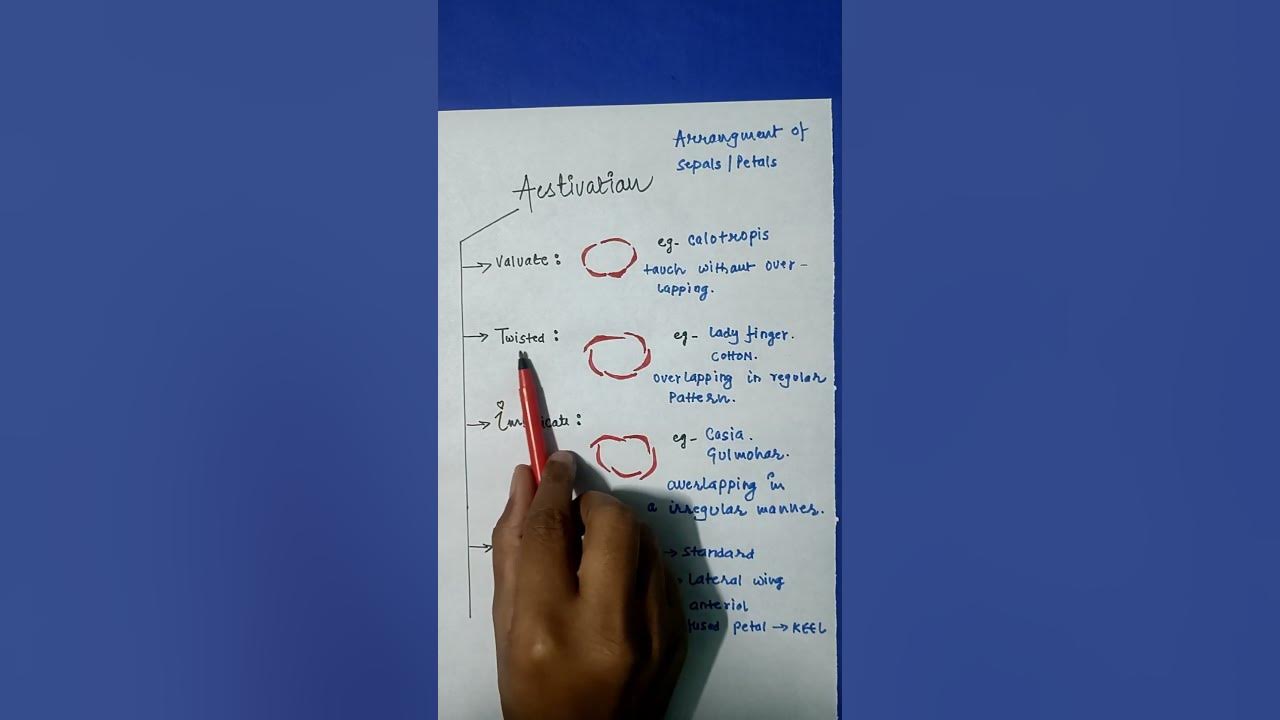 Arrangment of
Sepals / Petals
Aestivation
Valvate :
eg- Calotropis
touch without over -
lapping.
Twisted :
eg- Lady finger.
Cotton.
overlapping in regular
Pattern.
eg- Casia.
Gulmohar.
overlapping in
a irregular manner.
→ Standard
Lateral wing
anterior
fused Petal → KEEL